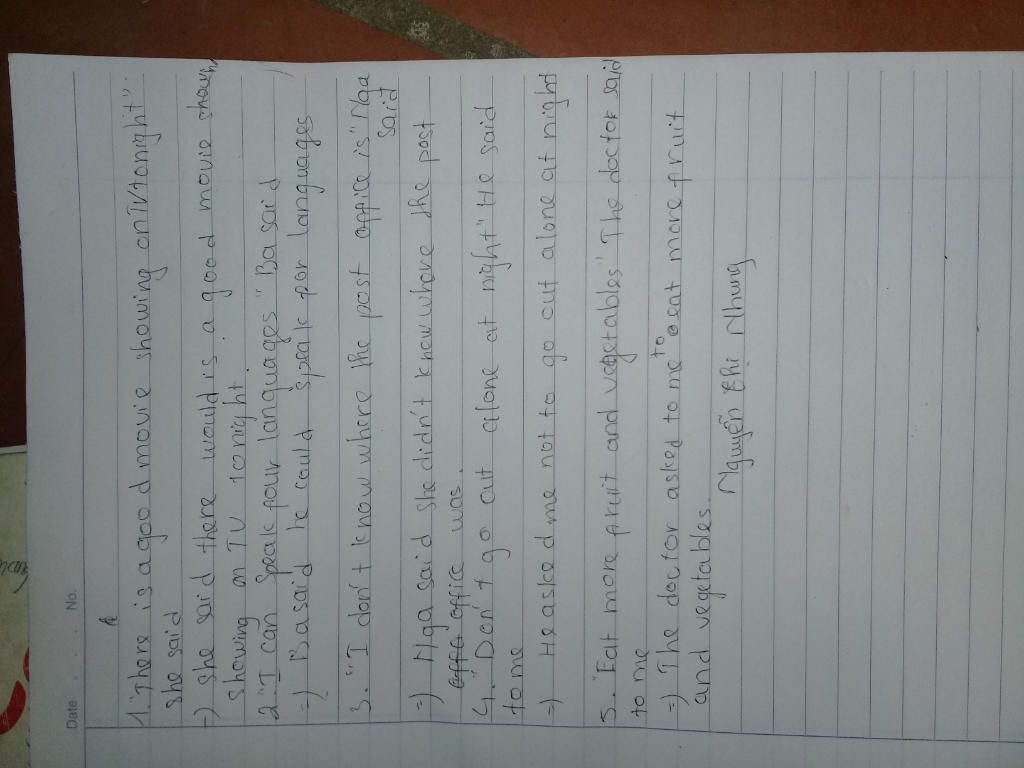 Date . . No.
A
1. "There is a good movie showing on TV tonight".
she said
=) she said there would is a good movie shown
showing on TV tonight.
2 "I can speak pour languages" Ba said
=) Ba said he could speak por languages
3. "I don't know where the post oppice is" Nga
said
=) Nga said she didn't know where the post
office was.
4. "Don't go out alone at night" He said
to me
=) He asked me not to go out alone at night
5. "Eat more pruit and vegetables" The doctor said
to me
=) The doctor asked to me to eat more pruit
and vegetables.
Nguyễn Thị Nhung